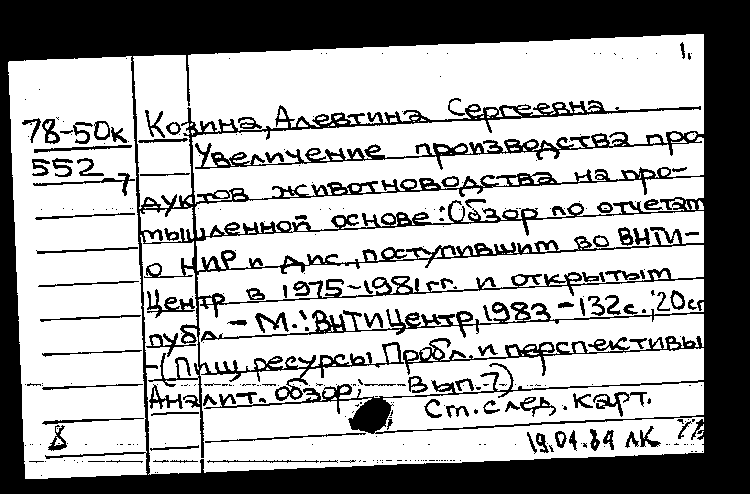 1.
78-50к Козина, Алевтина Сергеевна.
552-7 Увеличение производства про-
дуктов животноводства на про-
мышленной основе: Обзор по отчетам
о НИР и дис., поступившим во ВНТИ-
Центр в 1975-1981 гг. и открытым
публ. - М.: ВНТИЦентр, 1983. - 132 с.; 20 см
-(Пищ. ресурсы. Пробл. и перспективы
Аналит. обзор; Вып. 7).
См. след. карт.
8
19.01.84 ЛК